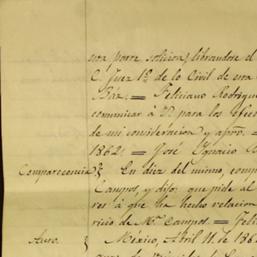 librandose el
C. Juez 1º de lo Civil de esa
Báz. = Feliciano Rodrigu
comunicar á V. para los efec
de mi consideracion y apro. =
1862. = José Ygnacio
Comparecencia} En diez del mismo, comp
Campos, y dijo: que pide al
res á que ha hecho relacion
ricio de M. Campos. = Feli
Auto. } Mexico, Abril 11 de 186